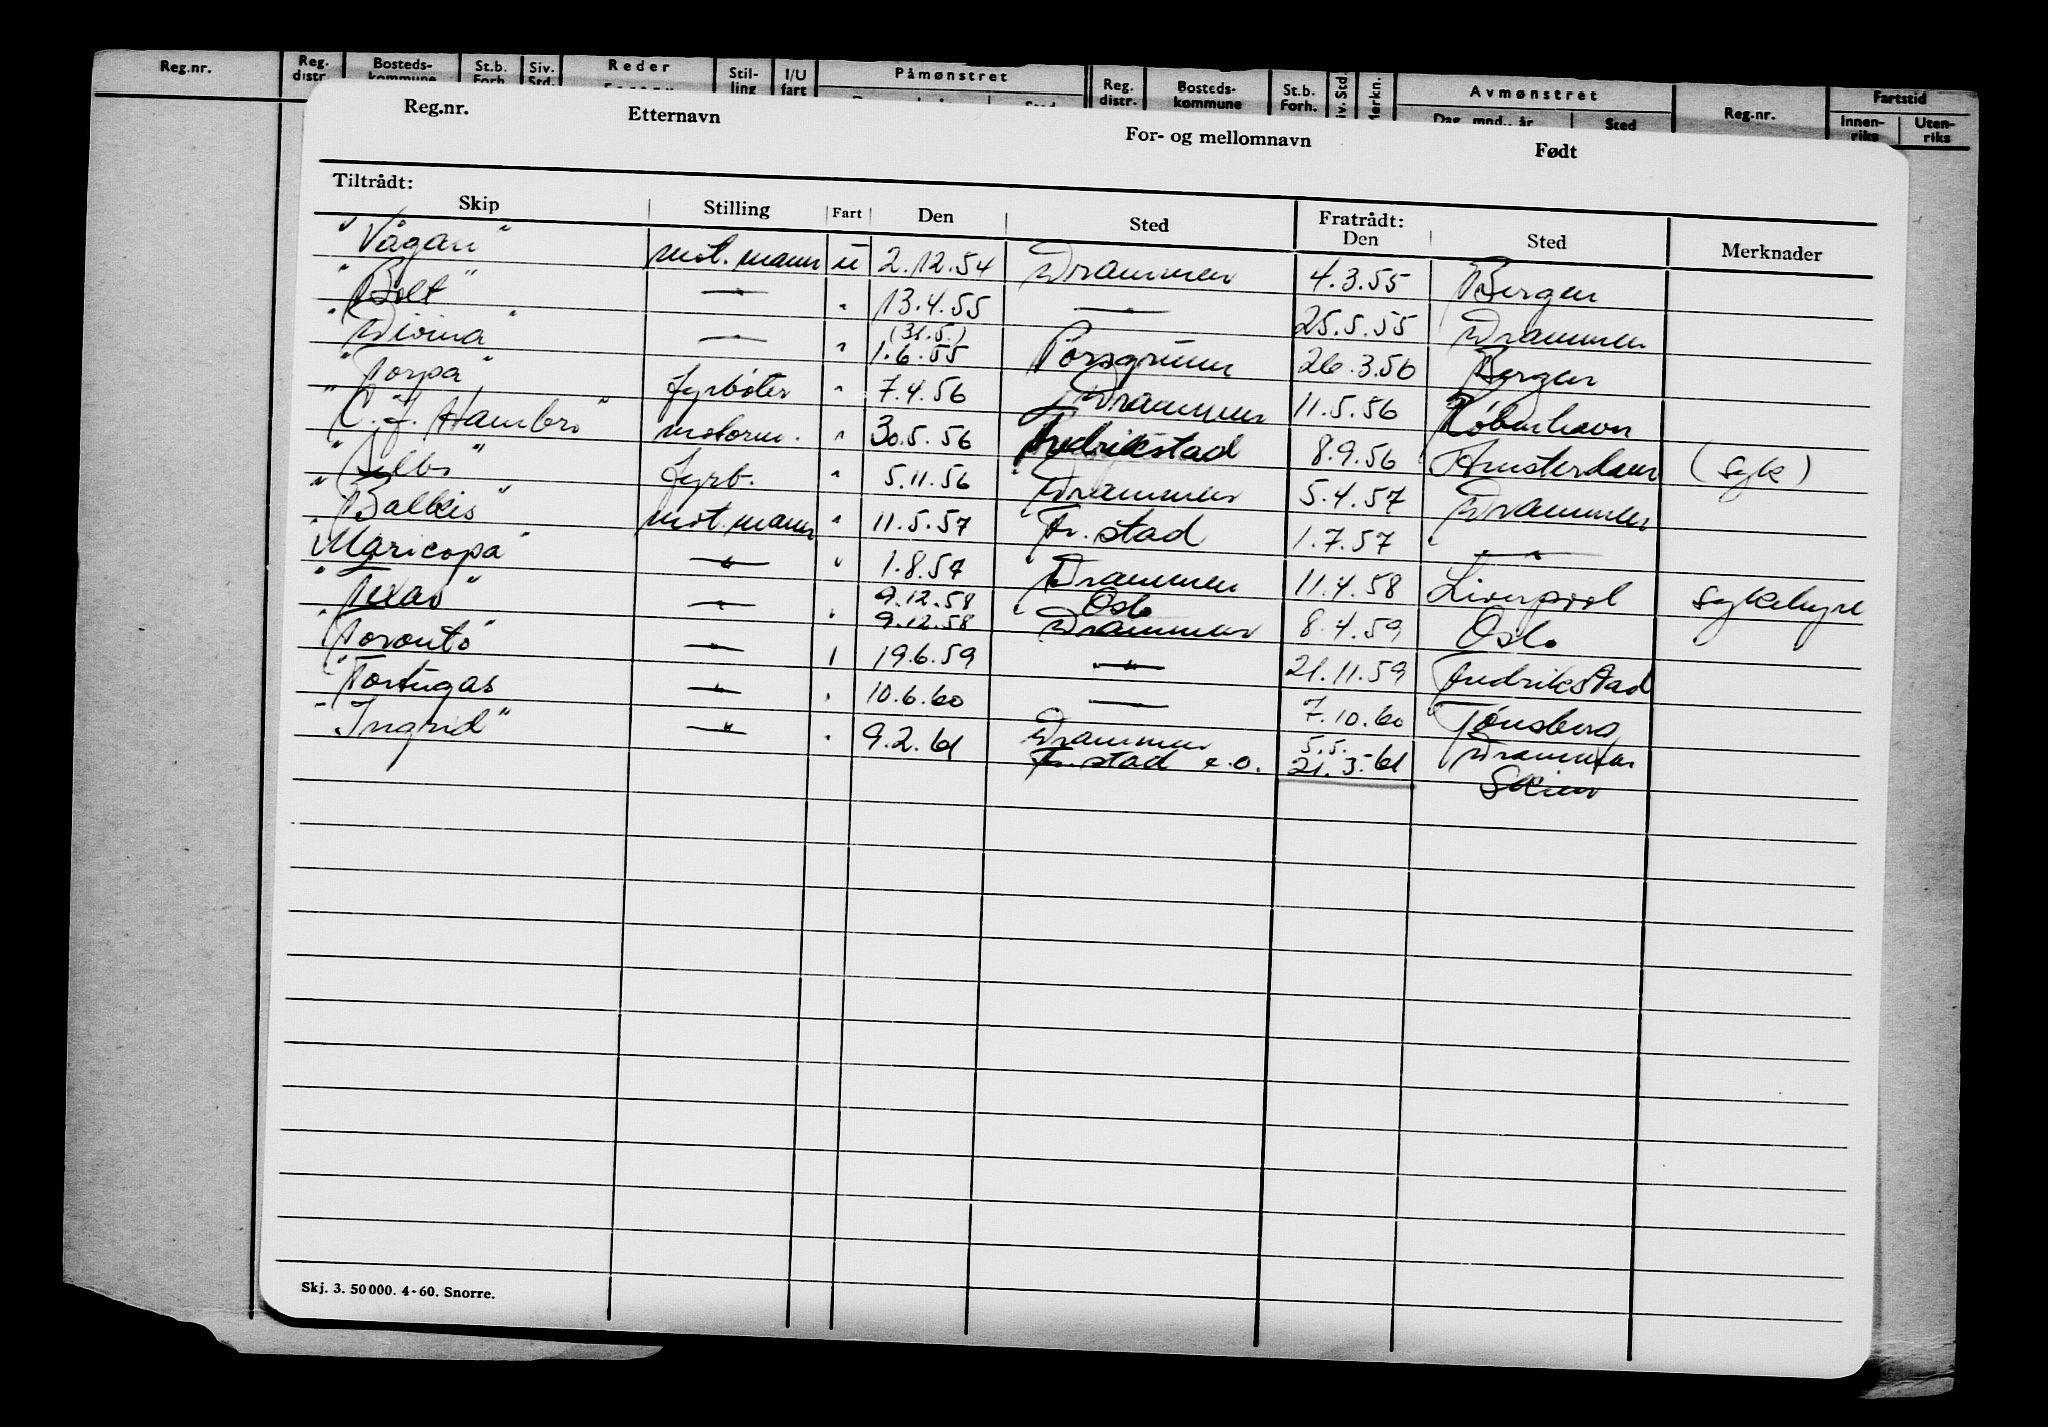 Reg.nr. Reg. distr. Bosteds- kommune St.b. Forh. Siv. Std. Reder Stil- ling I/U fart Påmønstret Sted Reg. distr. Bosteds- kommune St.b. Forh. Merkn. Avmønstret Dag, mnd., år Sted Reg.nr. Fartstid Innen- riks Uten- riks
Reg.nr. Etternavn For- og mellomnavn Født
Tiltrådt: Fratrådt:
Skip Stilling Fart Den Sted Den Sted Merknader
"Vågan" mot. mann u 2.12.54 Drammen 4.3.55 Bergen
"Bolt" —"— " 13.4.55 —"— 25.5.55 Drammen
"Divina" —"— " (31.5.) 1.6.55 Porsgrunn 26.3.56 Bergen
"Torpa" fyrbøter " 7.4.56 Drammen 11.5.56 København
"C. J. Hambro" motorm. " 30.5.56 Fredrikstad 8.9.56 Amsterdam (syk)
fyrb. " 5.11.56 Drammen 5.4.57 Drammen
"Balkis" mot. mann " 11.5.57 Fr.stad 1.7.57 —"—
"Maricopa" —"— " 1.8.57 Drammen 11.4.58 Liverpool sykehyre
"Texas" —"— " 9.12.58 9.12.58 Oslo Drammen 8.4.59 Oslo
"Toronto" —"— I 19.6.59 —"— 21.11.59 Fredrikstad
"Tortugas —"— " 10.6.60 —"— 7.10.60 Tønsberg
"Ingrid" —"— " 9.2.61 Drammen 5.5. Drammen
Fr.stad e.o. 21.3.61 Skien
Skj. 3. 50 000. 4-60. Snorre.